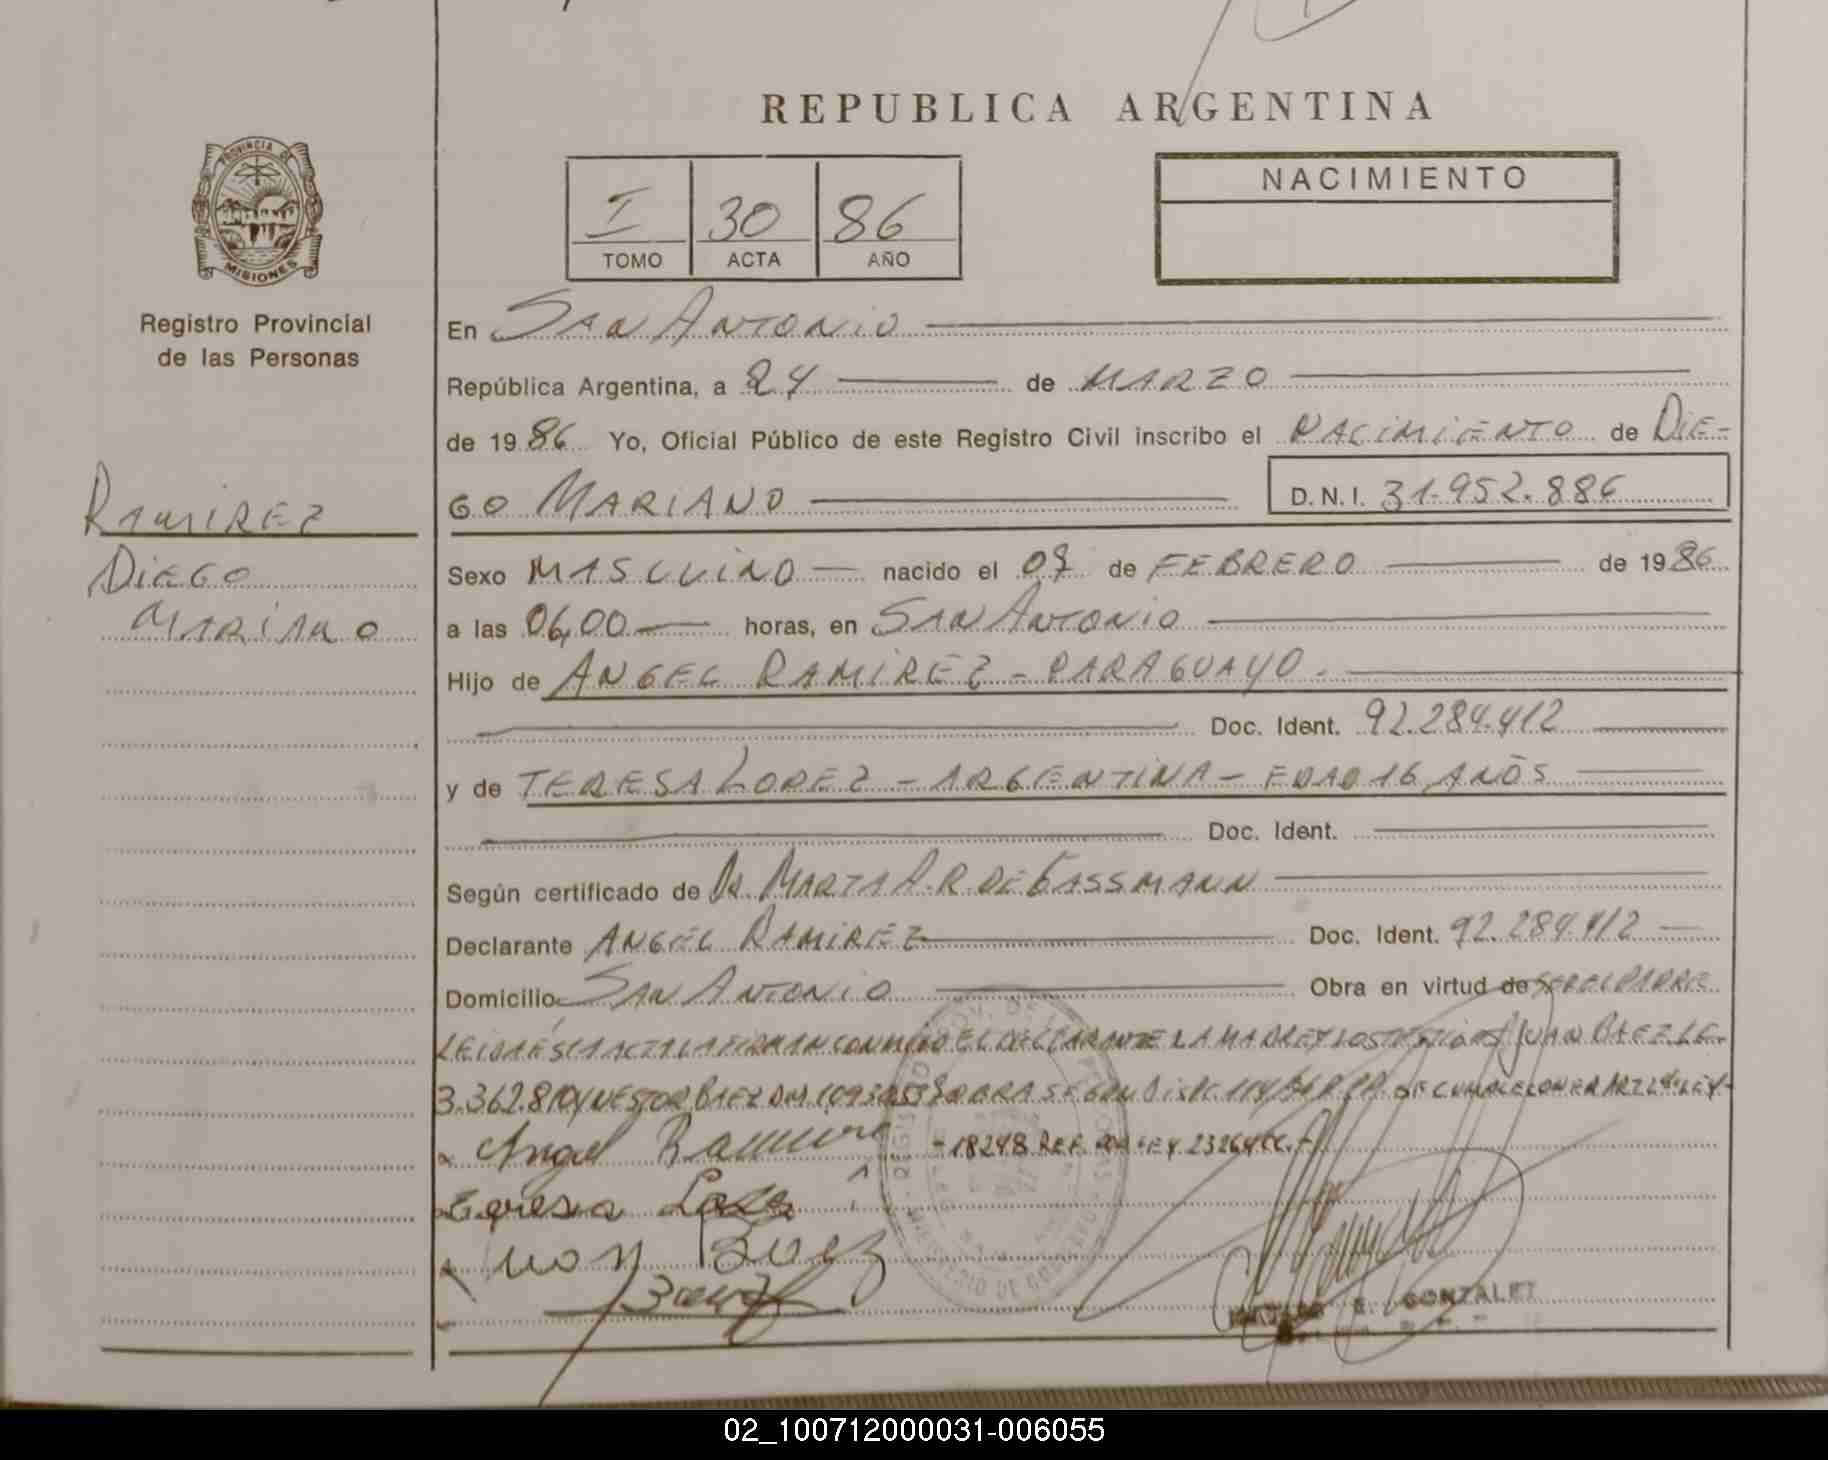 REPUBLICA ARGENTINA
PROVINCIA DE
MISIONES
Registro Provincial
de las Personas
I 30 86
TOMO ACTA AÑO
NACIMIENTO
En SAN ANTONIO
República Argentina, a 24 de MARZO
de 1986 Yo, Oficial Público de este Registro Civil inscribo el NACIMIENTO de DIE-
GO MARIANO D.N.I. 31.952.886
RAMIREZ
DIEGO
MARIANO
Sexo MASCULINO nacido el 07 de FEBRERO de 1986
a las 06,00 horas, en SAN ANTONIO
Hijo de ANGEL RAMIREZ - PARAGUAYO.
Doc. Ident. 92.284.412
y de TERESA LOPEZ - ARGENTINA - EDAD 16 AÑOS
Doc. Ident.
Según certificado de DRA. MARTA A.R. DE GASSMANN
Declarante ANGEL RAMIREZ Doc. Ident. 92.284.412
Domicilio SAN ANTONIO Obra en virtud de SER EL PADRE
LEIDA ESTA ACTA LA FIRMAN CONMIGO EL DECLARANTE LA MADRE Y LOS TESTIGOS JUAN BAEZ L.E.
3.362.810 Y NESTOR BAEZ DNI OBRA SEGUN DISP. DE CUMPL. CON ER ART 2 LEY
-18248 REF. POR LEY 23264
Angel Ramirez
Teresa Lopez
Juan Baez
Baez
E. GONZALEZ
02_100712000031-006055